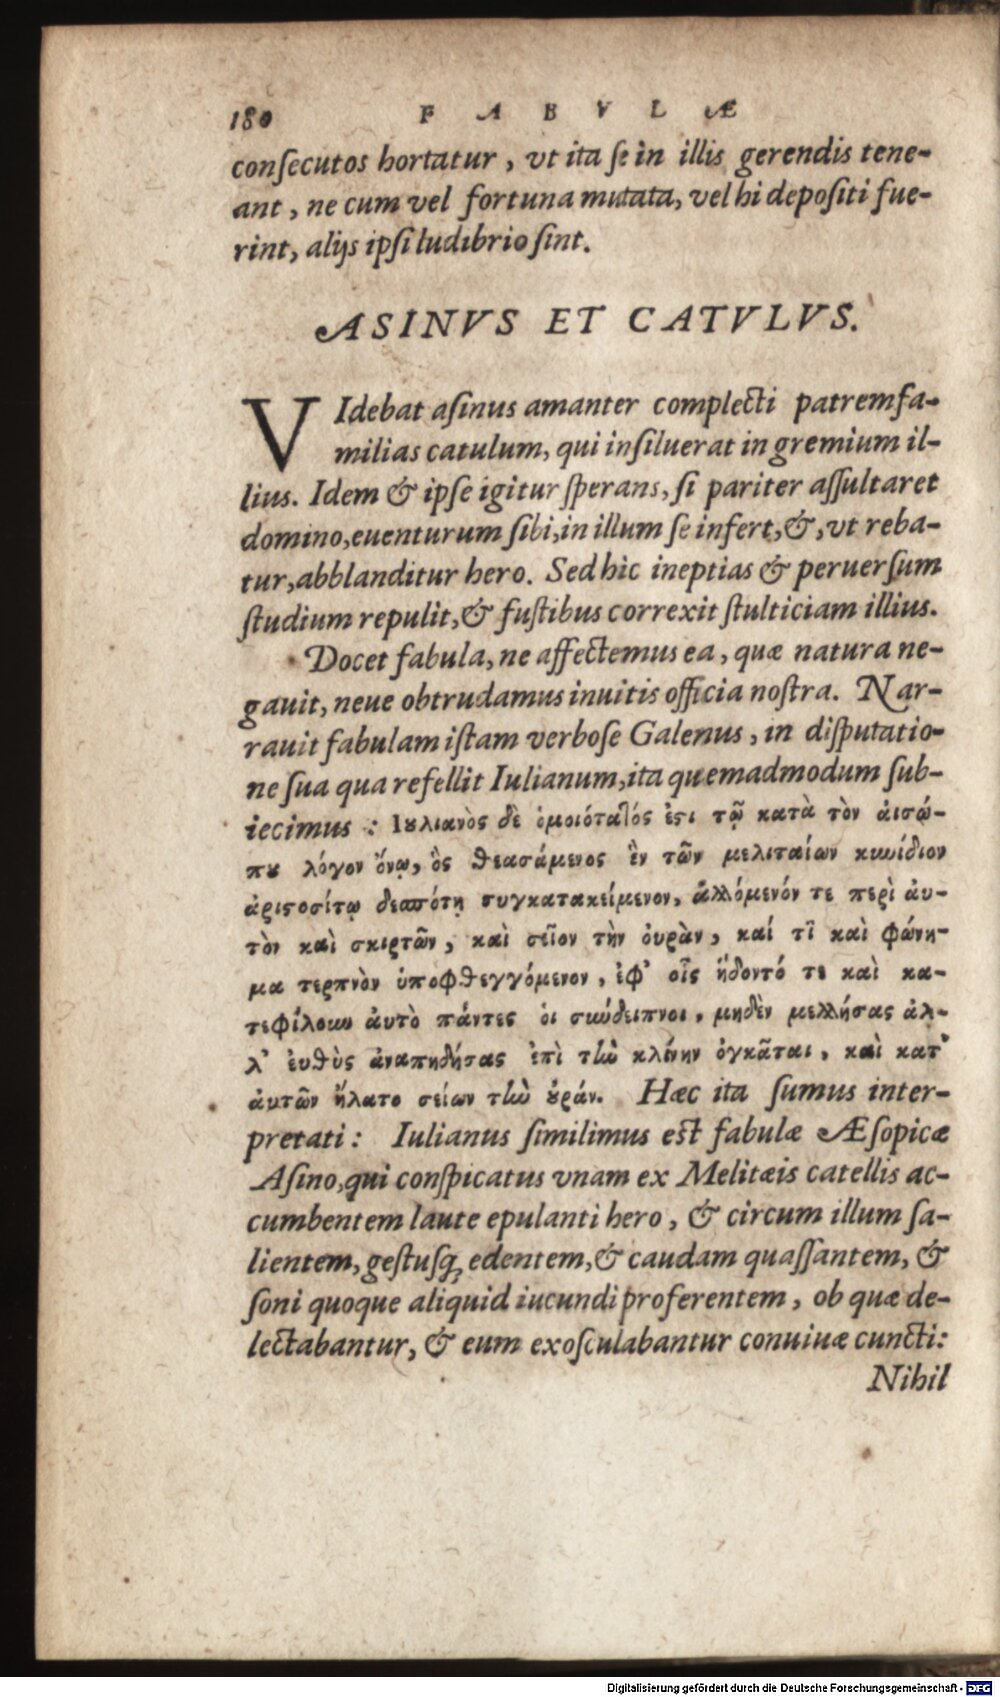 180 F A B V L Æ
conſecutos hortatur, vt ita ſe in illis gerendis tene-
ant, ne cum vel fortuna mutata, vel hi depoſiti fue-
rint, alijs ipſi ludibrio ſint.
ASINVS ET CATVLVS.
VIdebat aſinus amanter complecti patremfa-
milias catulum, qui inſiluerat in gremium il-
lius. Idem & ipſe igitur ſperans, ſi pariter aſſultaret
domino, euenturum ſibi, in illum ſe infert, &, vt reba-
tur, abblanditur hero. Sed hic ineptias & peruerſum
ſtudium repulit, & fuſtibus correxit ſtulticiam illius.
Docet fabula, ne affectemus ea, quæ natura ne-
gauit, neue obtrudamus inuitis officia noſtra. Nar-
rauit fabulam iſtam verboſe Galenus, in diſputatio-
ne ſua qua refellit Iulianum, ita quemadmodum ſub-
iecimus : Ιουλιανὸς δὲ ὁμοιότατός ἐστι τῷ κατὰ τὸν ἀισώ-
που λόγον ὄνῳ, ὃς θεασάμενος ἓν τῶν μελιταίων κυνίδιον
ἀριστοσίτῳ δεσπότῃ συγκατακείμενον, ἁλλόμενόν τε περὶ ἀυ-
τὸν καὶ σκιρτῶν, καὶ σεῖον τὴν ὀυρὰν, καί τι καὶ φώνη-
μα τερπνὸν ὑποφθεγγόμενον, ἐφ' οἷς ἥδοντό τε καὶ κα-
τεφίλουν ἀυτὸ πάντες ὁι σύνδειπνοι, μηδὲν μελλήσας ἀλ-
λ' ἐυθὺς ἀναπηδήσας ἐπὶ τὴν κλίνην ὀγκᾶται, καὶ κατ'
ἀυτῶν ἥλατο σείων τὴν οὐράν. Hæc ita ſumus inter-
pretati : Iulianus ſimilimus eſt fabulæ Æſopicæ
Aſino, qui conſpicatus vnam ex Melitæis catellis ac-
cumbentem laute epulanti hero, & circum illum ſa-
lientem, geſtuſq; edentem, & caudam quaſſantem, &
ſoni quoque aliquid iucundi proferentem, ob quæ de-
lectabantur, & eum exoſculabantur conuiuæ cuncti:
Nihil
Digitalisierung gefördert durch die Deutsche Forschungsgemeinschaft - DFG